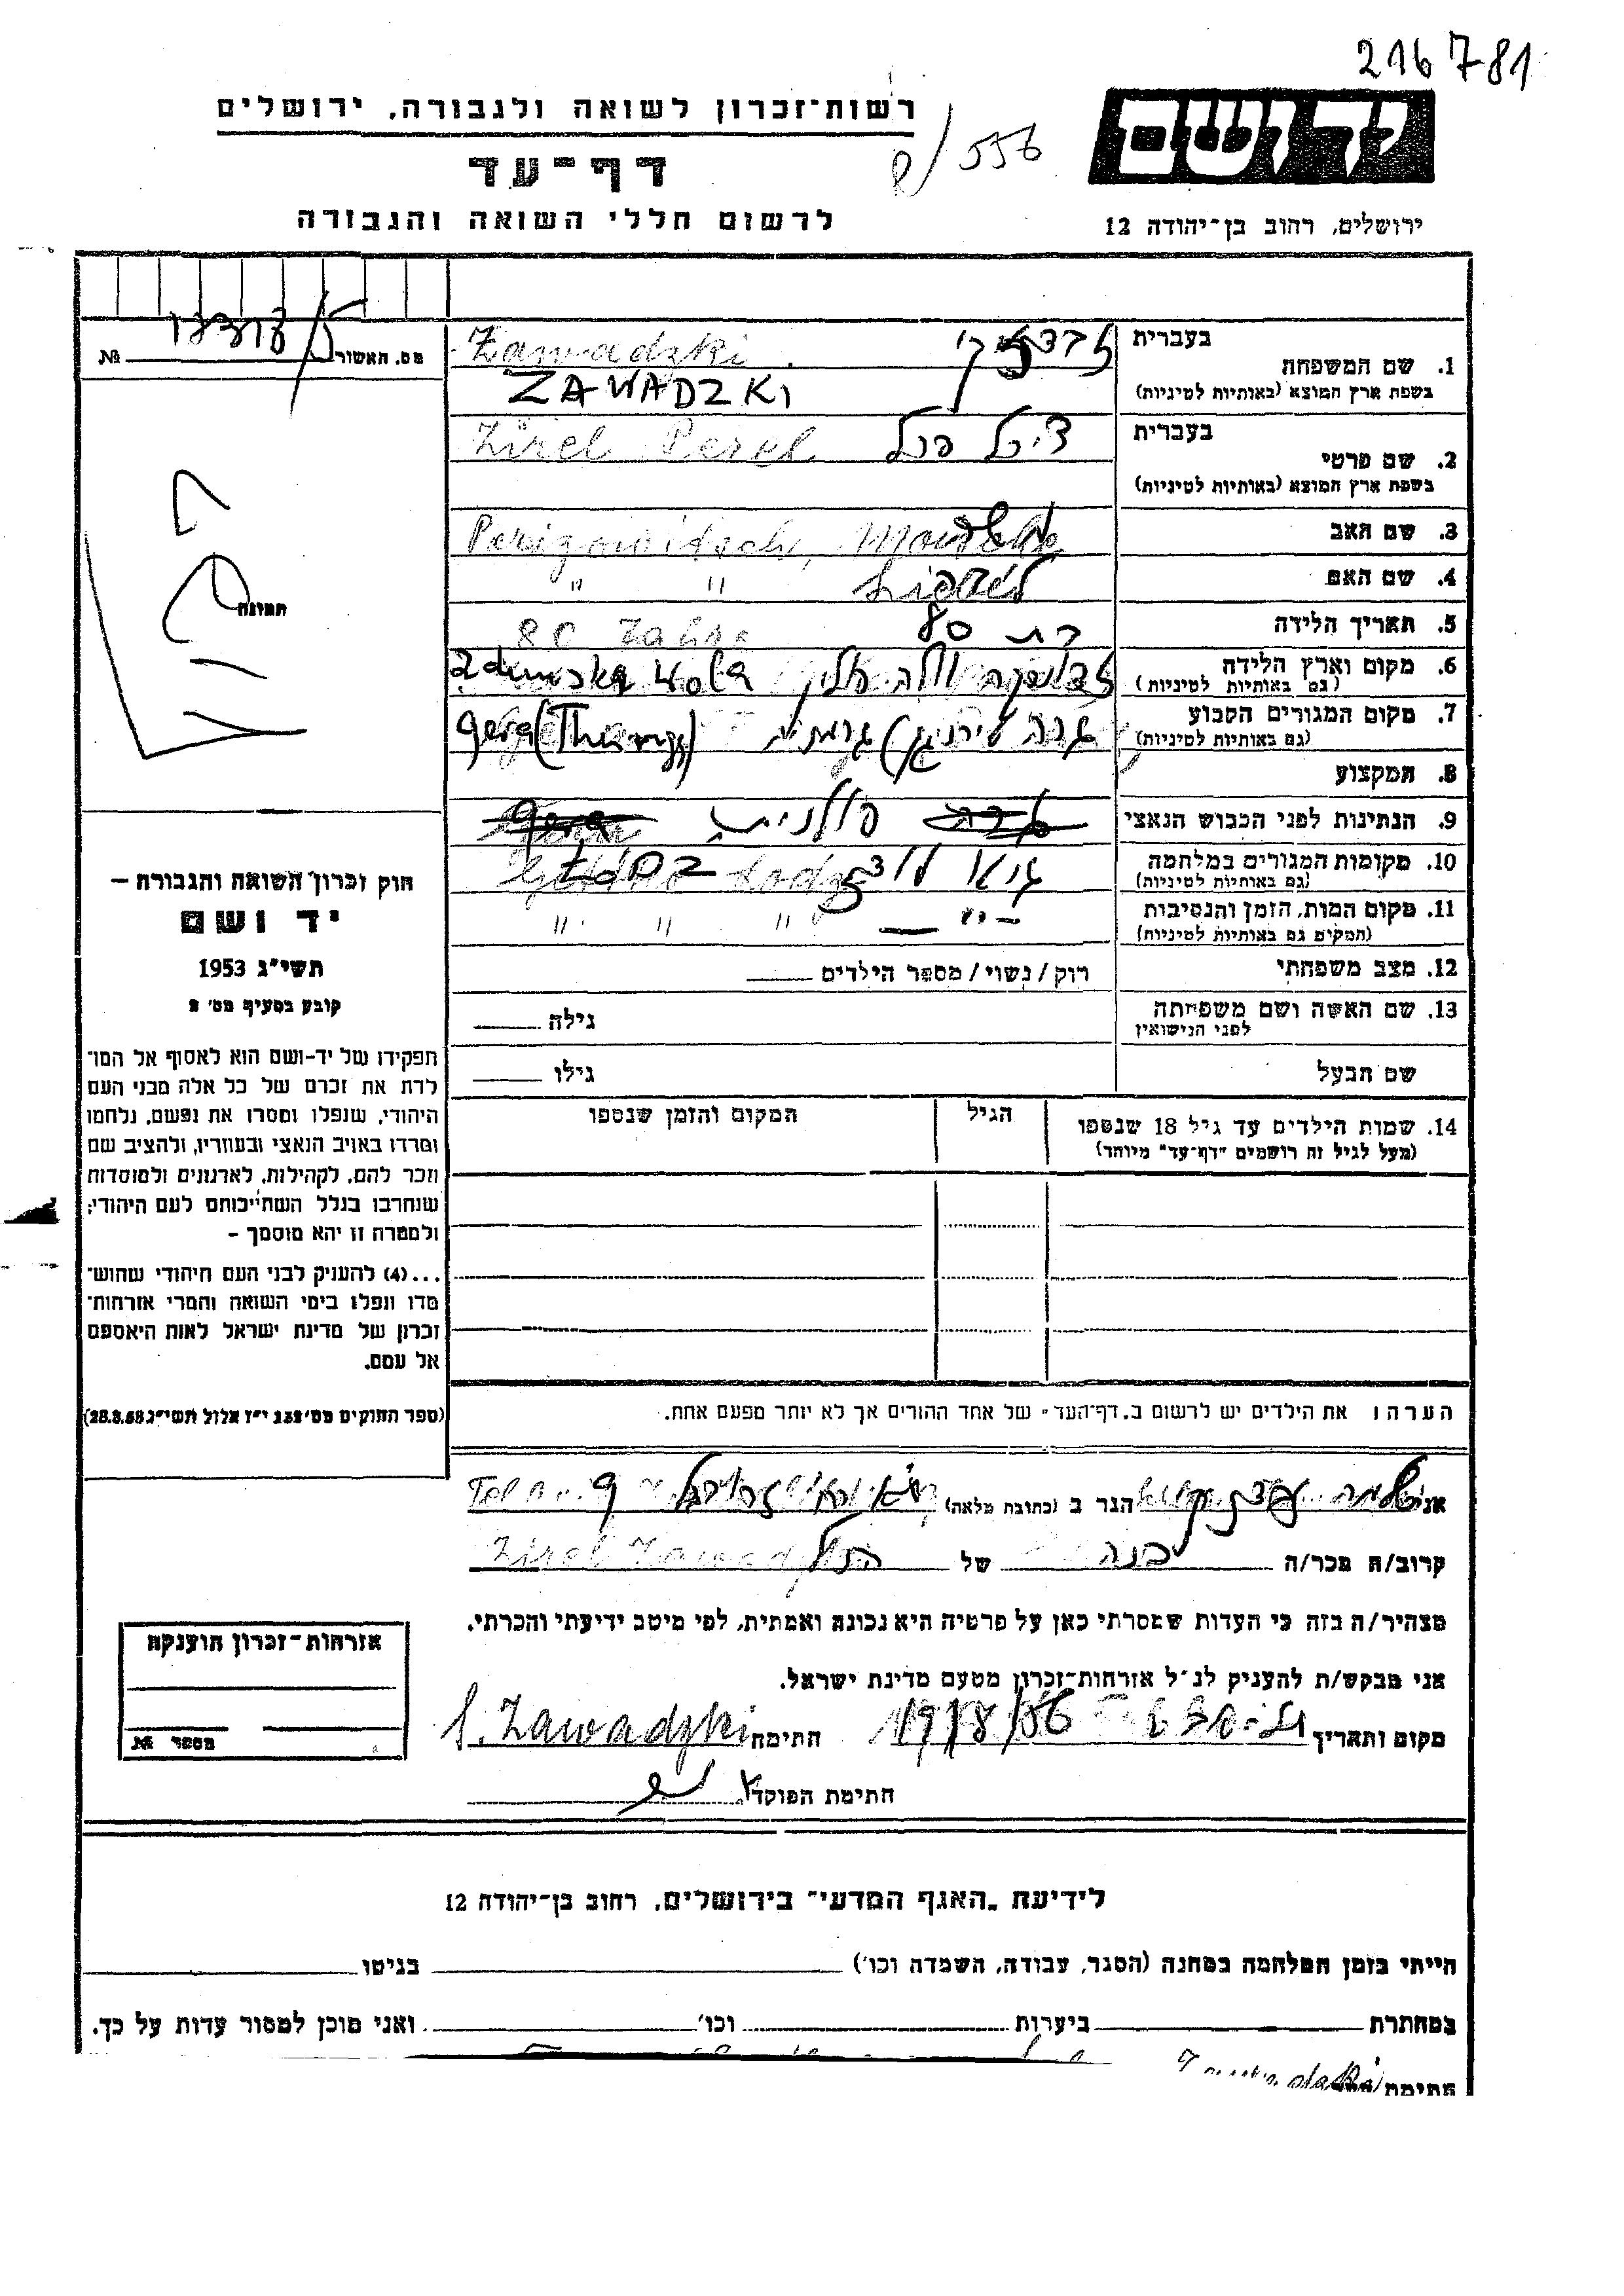 216781
רשות־זכרון לשואה ולגבורה, ירושלים
יד ושם
דף־עד
ירושלים, רחוב בן־יהודה 12
לרשום חללי השואה והגבורה
מס. תאשור №
בעברית
Zawadzki
1. שם המשפחה
בשפת ארץ המוצא (באותיות לטיניות) ZAWADZKI
בעברית צירל פרל
Zirel Perel
2. שם פרטי
בשפת ארץ המוצא (באותיות לטיניות)
3. שם האב
4. שם האם
" "
5. תאריך הלידה בת 80
80 Jahre
6. מקום וארץ הלידה
(גם באותיות לטיניות) Zdunska Wola
7. מקום המגורים הקבוע
(גם באותיות לטיניות) Gera
8. המקצוע
9. הנתינות לפני הכבוש הנאצי פולנית
10. מקומות המגורים במלחמה גיטו לודz
(גם באותיות לטיניות) ŁODZ
11. מקום המות, הזמן והנסיבות
(המקום גם באותיות לטיניות) " " "
12. מצב משפחתי רוק/נשוי/מספר הילדים
13. שם האשה ושם משפחתה
לפני הנישואין גילה
שם הבעל גילו
14. שמות הילדים עד גיל 18 שנספו
(מעל לגיל זה רושמים "דף־עד" מיוחד)
הגיל
המקום והזמן שנספו
תמונה
חוק זכרון השואה והגבורה –
יד ושם
תשי״ג 1953
קובע בסעיף מס׳ 2
תפקידו של יד-ושם הוא לאסוף אל המו־
לדת את זכרם של כל אלה מבני העם
היהודי, שנפלו ומסרו את נפשם, נלחמו
ומרדו באויב הנאצי ובעוזריו, ולהציב שם
וזכר להם, לקהילות, לארגונים ולמוסדות
שנחרבו בגלל השתייכותם לעם היהודי;
ולמטרה זו יהא מוסמך –
...(4) להעניק לבני העם היהודי שהוש־
מדו ונפלו בימי השואה והמרי אזרחות־
זכרון של מדינת ישראל לאות היאספם
אל עמם.
(ספר החוקים מס׳ 132 י״ז אלול תשי״ג 28.8.53)
הערה: את הילדים יש לרשום ב„דף־העד" של אחד ההורים אך לא יותר מפעם אחת.
אני הגר ב (כתובת מלאה)
קרוב/ה מכר/ה בנה של הנ״ל Zirel Zawadzki
מצהיר/ה בזה כי העדות שמסרתי כאן על פרטיה היא נכונה ואמתית, לפי מיטב ידיעתי והכרתי.
אני מבקש/ת להעניק לנ״ל אזרחות־זכרון מטעם מדינת ישראל.
מקום ותאריך 19/8/56 חתימה S. Zawadzki
חתימת הפוקד
אזרחות־זכרון הוענקה
מספר №
לידיעת „האגף המדעי" בירושלים, רחוב בן־יהודה 12
הייתי בזמן המלחמה במחנה (הסגר, עבודה, השמדה וכו׳) בגיטו
במחתרת ביערות וכו׳ ואני מוכן למסור עדות על כך.
חתימת